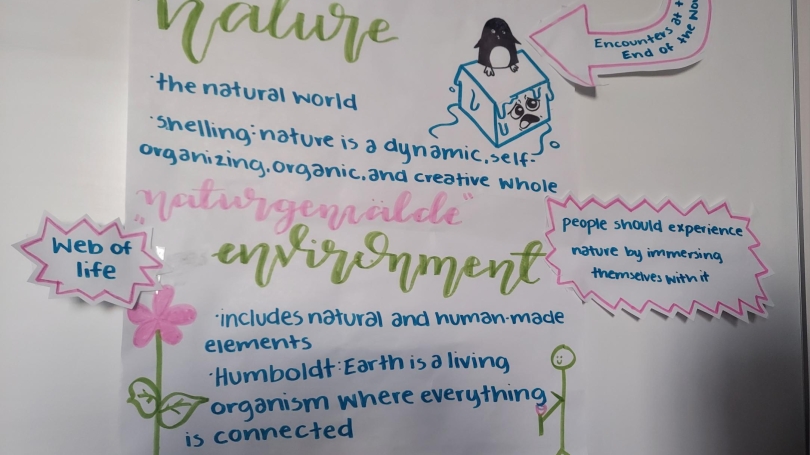 nature
Encounters at t
End of the Wor
·the natural world
·Snelling: nature is a dynamic, self-
organizing, organic, and creative whole
"naturgemälde"
environment
Web of
life
people should experience
nature by immersing
themselves with it
·includes natural and human-made
elements
·Humboldt: Earth is a living
organism where everything
is connected